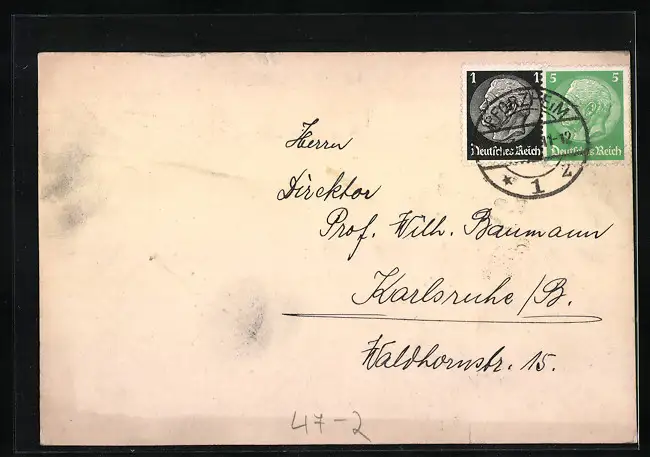 1 1
Deutsches Reich
5 5
Deutsches Reich
PFORZHEIM
11-12
* 1 z
Herrn
Direktor
Prof. Wilh. Baumann
Karlsruhe/B.
Waldhornstr. 15.
47-2